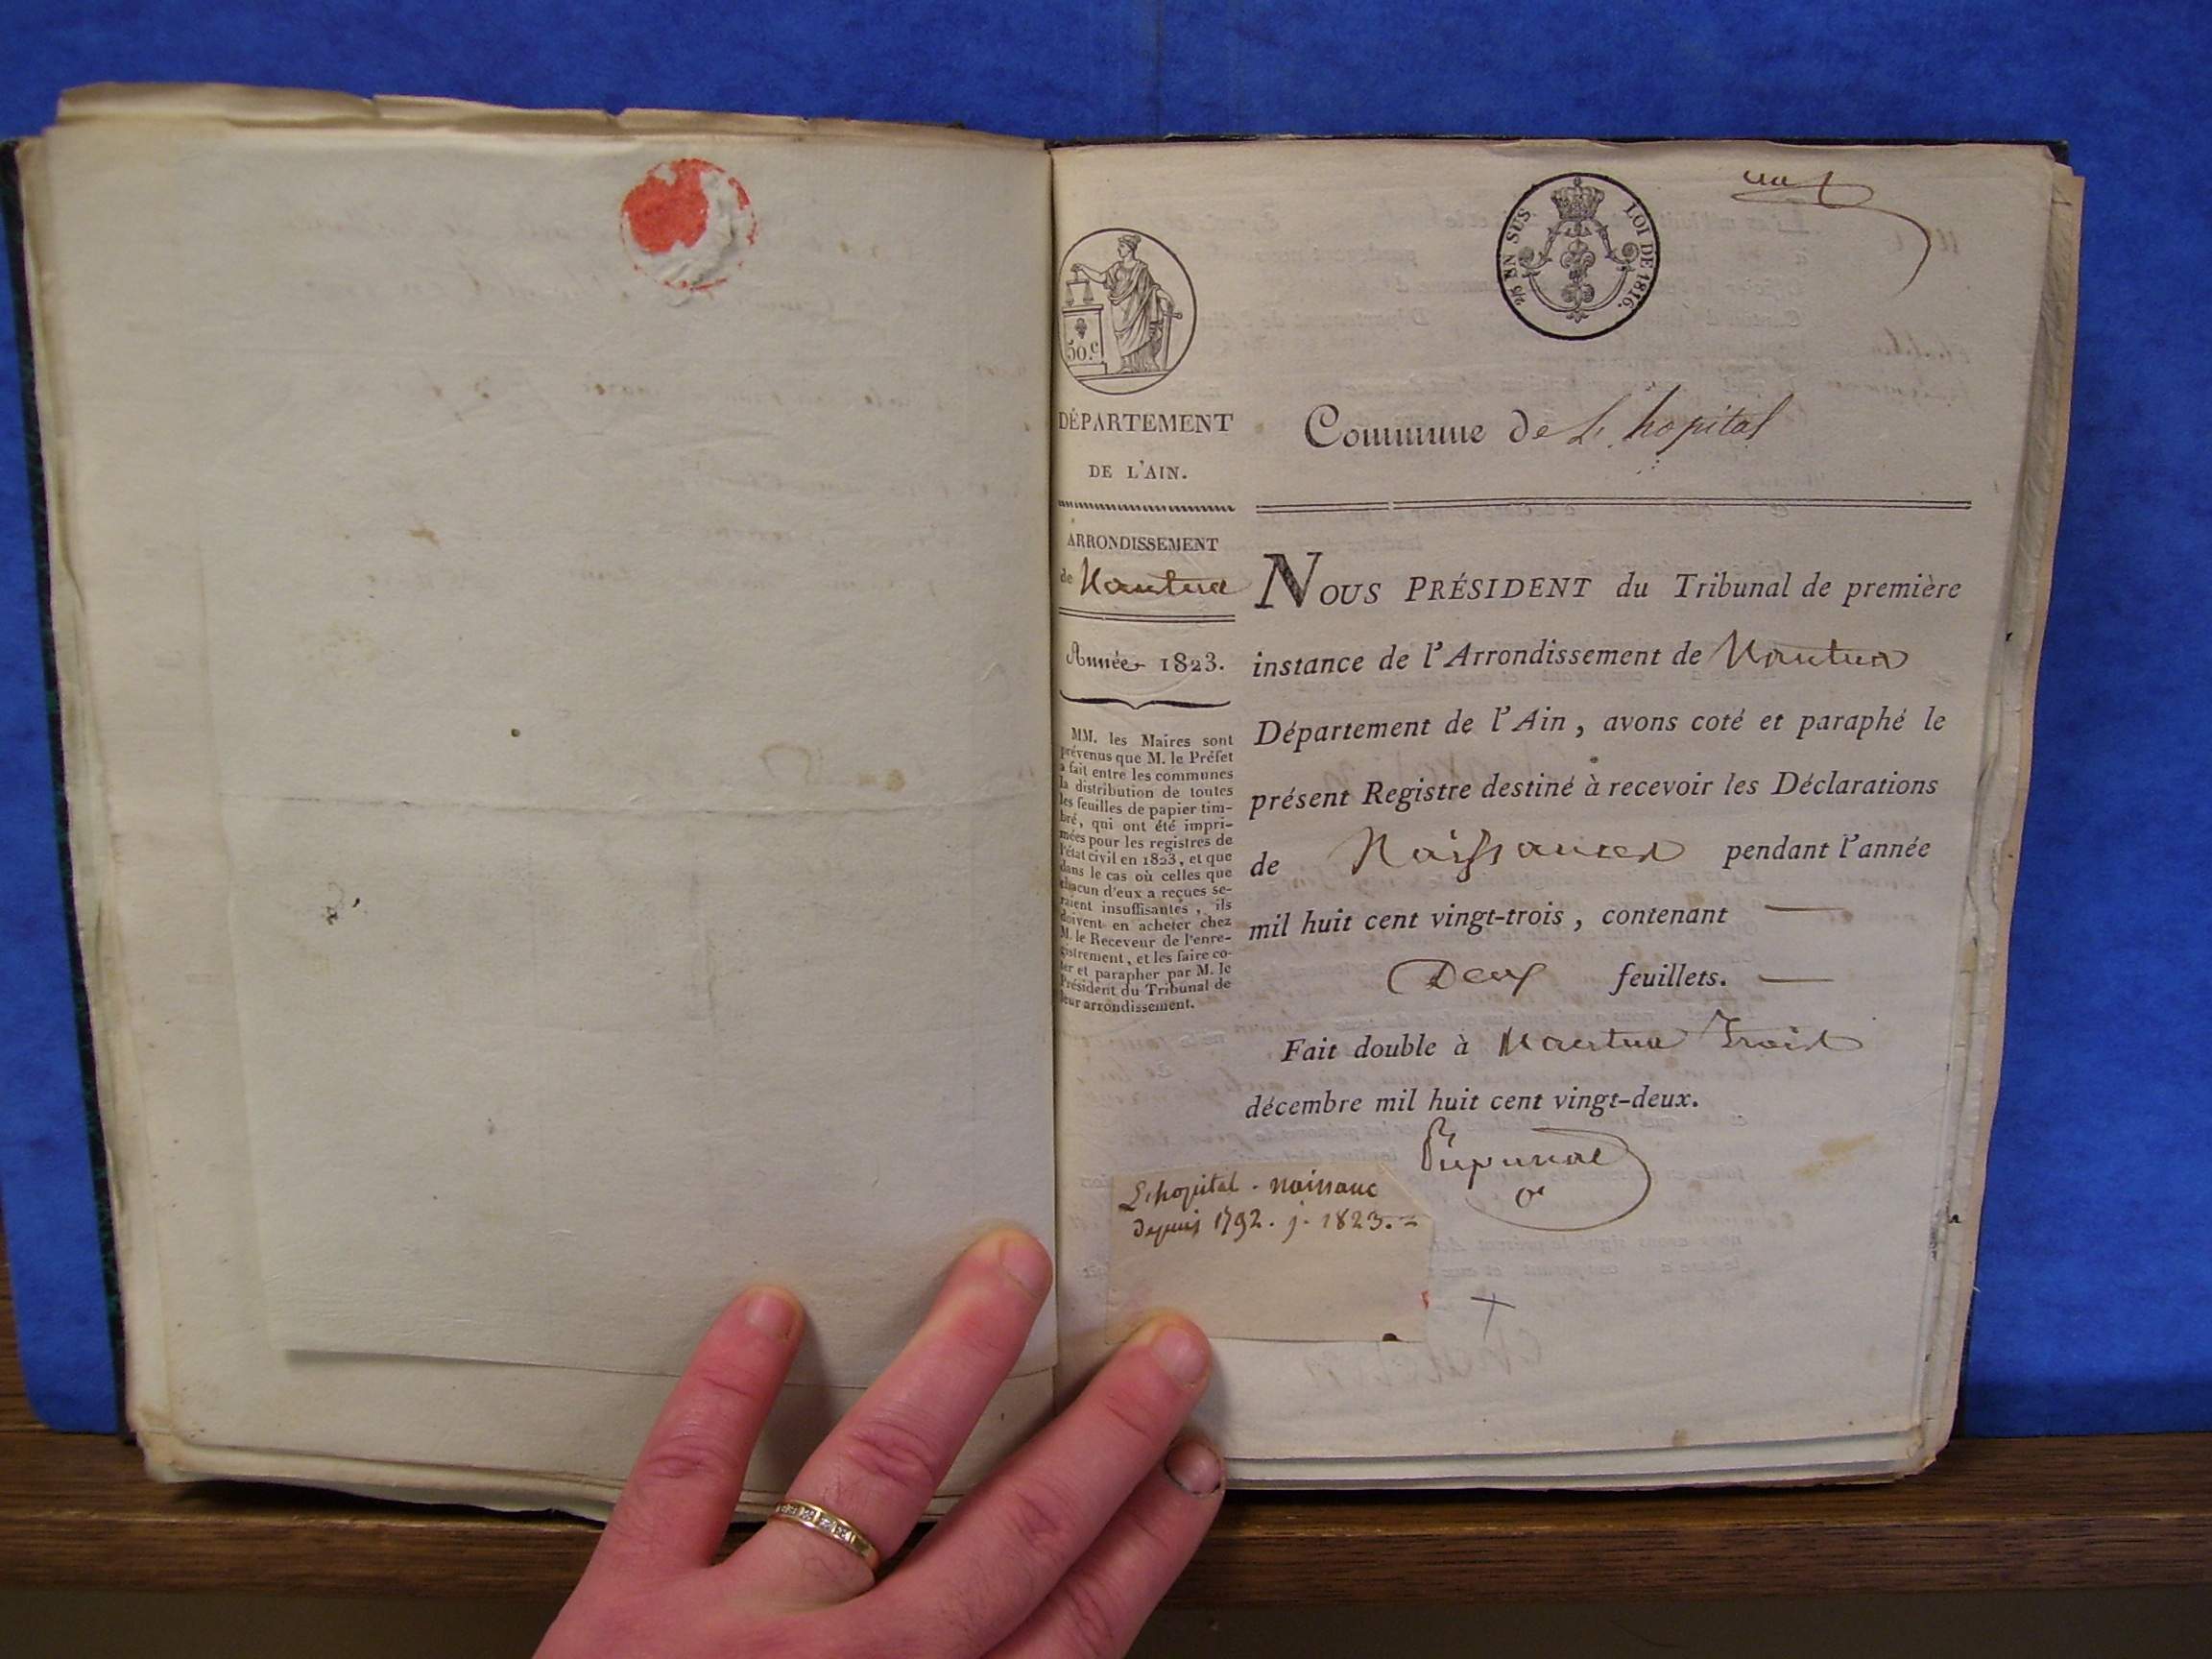 50.c
DÉPARTEMENT
DE L'AIN.
ARRONDISSEMENT
de Nantua
Année 1823.
MM. les Maires sont
prévenus que M. le Préfet
a fait entre les communes
la distribution de toutes
les feuilles de papier tim-
bré, qui ont été impri-
mées pour les registres de
l'état civil en 1823, et que
dans le cas où celles que
chacun d'eux a reçues se-
raient insuffisantes, ils
doivent en acheter chez
M. le Receveur de l'enre-
gistrement, et les faire co-
ter et parapher par M. le
Président du Tribunal de
leur arrondissement.
2/5 EN SUS
LOI DE 1816.
Commune de L'hopital
NOUS PRÉSIDENT du Tribunal de première
instance de l'Arrondissement de Nantua
Département de l'Ain, avons coté et paraphé le
présent Registre destiné à recevoir les Déclarations
de Naissances pendant l'année
mil huit cent vingt-trois, contenant —
Deux feuillets. —
Fait double à Nantua Trois
décembre mil huit cent vingt-deux.
L'hopital - naissanc
depuis 1792. j. 1823. =